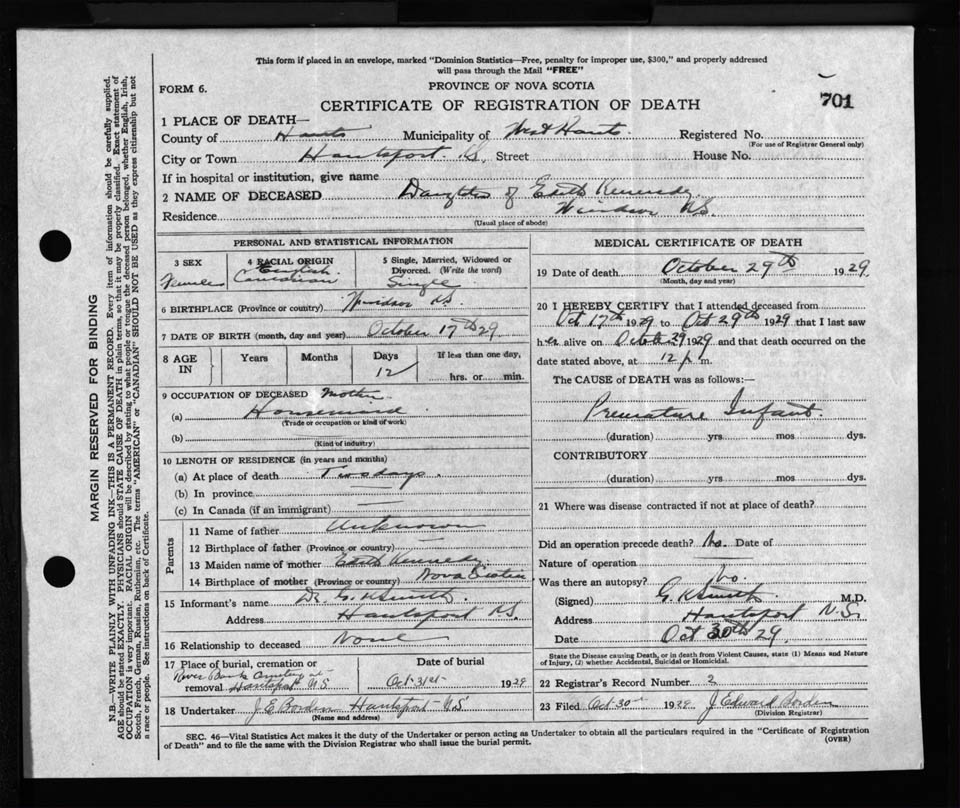 This form if placed in an envelope, marked "Dominion Statistics—Free, penalty for improper use, $300," and properly addressed
will pass through the Mail "FREE"
FORM 6.
PROVINCE OF NOVA SCOTIA
CERTIFICATE OF REGISTRATION OF DEATH
701
1 PLACE OF DEATH—
County of Hants Municipality of West Hants Registered No.
(For use of Registrar General only)
City or Town Hantsport N.S. Street House No.
If in hospital or institution, give name
2 NAME OF DECEASED Daughter of Edith Kennedy
Residence Windsor N.S.
(Usual place of abode)
PERSONAL AND STATISTICAL INFORMATION
3 SEX
Female
4 RACIAL ORIGIN
English
Canadian
5 Single, Married, Widowed or
Divorced. (Write the word)
Single
6 BIRTHPLACE (Province or country) Windsor N.S.
7 DATE OF BIRTH (month, day and year) October 17th 29
8 AGE
IN
Years Months Days If less than one day,
12 hrs. or min.
9 OCCUPATION OF DECEASED Mother
(a) Housemaid
(Trade or occupation or kind of work)
(b)
(Kind of industry)
10 LENGTH OF RESIDENCE (in years and months)
(a) At place of death Two days
(b) In province
(c) In Canada (if an immigrant)
Parents
11 Name of father Unknown
12 Birthplace of father (Province or country)
13 Maiden name of mother Edith Kennedy
14 Birthplace of mother (Province or country) Nova Scotia
15 Informant's name Dr. G. K Smith
Address Hantsport N.S.
16 Relationship to deceased None
17 Place of burial, cremation or
River Bank Cemetery
removal Hantsport N.S
Date of burial
Oct. 31st 1929
18 Undertaker J. E Borden Hantsport N.S
(Name and address)
MEDICAL CERTIFICATE OF DEATH
19 Date of death October 29th 1929
(Month, day and year)
20 I HEREBY CERTIFY that I attended deceased from
Oct 17th 1929 to Oct 29th 1929 that I last saw
her alive on October 29 1929 and that death occurred on the
date stated above, at 12 p m.
The CAUSE OF DEATH was as follows:—
Premature Infant
(duration) yrs. mos. dys.
CONTRIBUTORY
(duration) yrs. mos. dys.
21 Where was disease contracted if not at place of death?
Did an operation precede death? No. Date of
Nature of operation
Was there an autopsy? No
(Signed) G. K Smith M.D.
Address Hantsport N.S.
Date Oct 30th 29.
State the Disease causing Death, or in death from Violent Causes, state (1) Means and Nature
of Injury, (2) whether Accidental, Suicidal or Homicidal.
22 Registrar's Record Number 2
23 Filed Oct 30th 1929 J. Edward Borden
(Division Registrar)
SEC. 46—Vital Statistics Act makes it the duty of the Undertaker or person acting as Undertaker to obtain all the particulars required in the "Certificate of Registration
of Death" and to file the same with the Division Registrar who shall issue the burial permit.
(OVER)
MARGIN RESERVED FOR BINDING
N.B.—WRITE PLAINLY WITH UNFADING INK—THIS IS A PERMANENT RECORD. Every item of information should be carefully supplied.
AGE should be stated EXACTLY. PHYSICIANS should STATE CAUSE OF DEATH in plain terms, so that it may be properly classified. Exact statement of
OCCUPATION is very important. RACIAL ORIGIN will be described by stating to what people or tongue the deceased person belonged, whether English, Irish,
Scotch, French, German, Russian, Ruthenian, etc. The terms "AMERICAN" or "CANADIAN" SHOULD NOT BE USED as they express citizenship but not
a race or people. See instructions on back of Certificate.